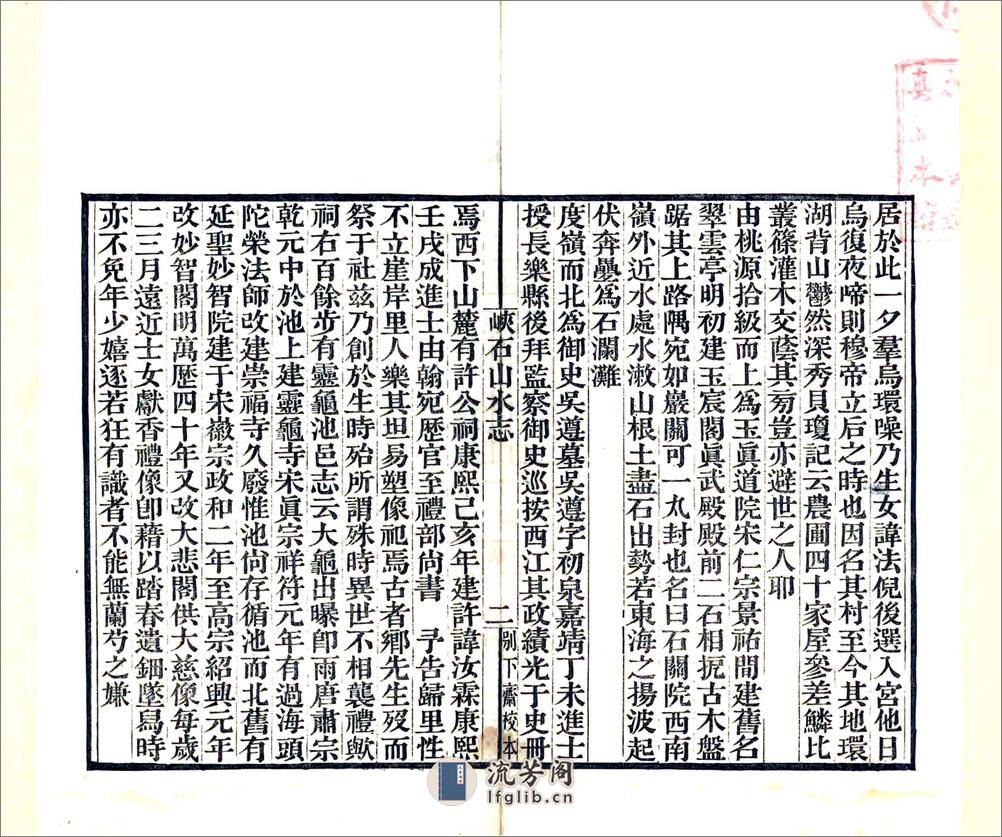 居於此一夕羣烏環噪乃生女諱法倪後選入宮他日
烏復夜啼則穆帝立后之時也因名其村至今其地環
湖背山鬱然深秀貝瓊記云農圃四十家屋參差鱗比
叢篠灌木交蔭其㫄豈亦避世之人耶
由桃源拾級而上爲玉眞道院宋仁宗景祐間建舊名
翠雲亭明初建玉宸閣眞武殿殿前二石相扼古木盤
踞其上路隅宛如巖關可一丸封也名曰石關院西南
嶺外近水處水潄山根土盡石出勢若東海之揚波起
伏奔疊爲石瀾灘
度嶺而北爲御史吳遵墓吳遵字初泉嘉靖丁未進士
授長樂縣後拜監察御史巡按西江其政績光于史冊
峽石山水志
二
別下齋校本
焉西下山麓有許公祠康熙己亥年建許諱汝霖康熙
壬戌成進士由翰宛歷官至禮部尙書 予告歸里性
不立崖岸里人樂其坦易塑像祀焉古者鄉先生歿而
祭于社玆乃創於生時殆所謂殊時異世不相襲禮歟
祠右百餘步有靈龜池邑志云大龜出曝卽雨唐肅宗
乾元中於池上建靈龜寺宋眞宗祥符元年有過海頭
陀榮法師改建崇福寺久廢惟池尙存循池而北舊有
延聖妙智院建于宋徽宗政和二年至高宗紹興元年
改妙智閣明萬歷四十年又改大悲閣供大慈像每歲
二三月遠近士女獻香禮像卽藉以踏春遺鈿墜舄時
亦不免年少嬉逐若狂有識者不能無蘭芍之嫌
流芳阁
lfglib.cn